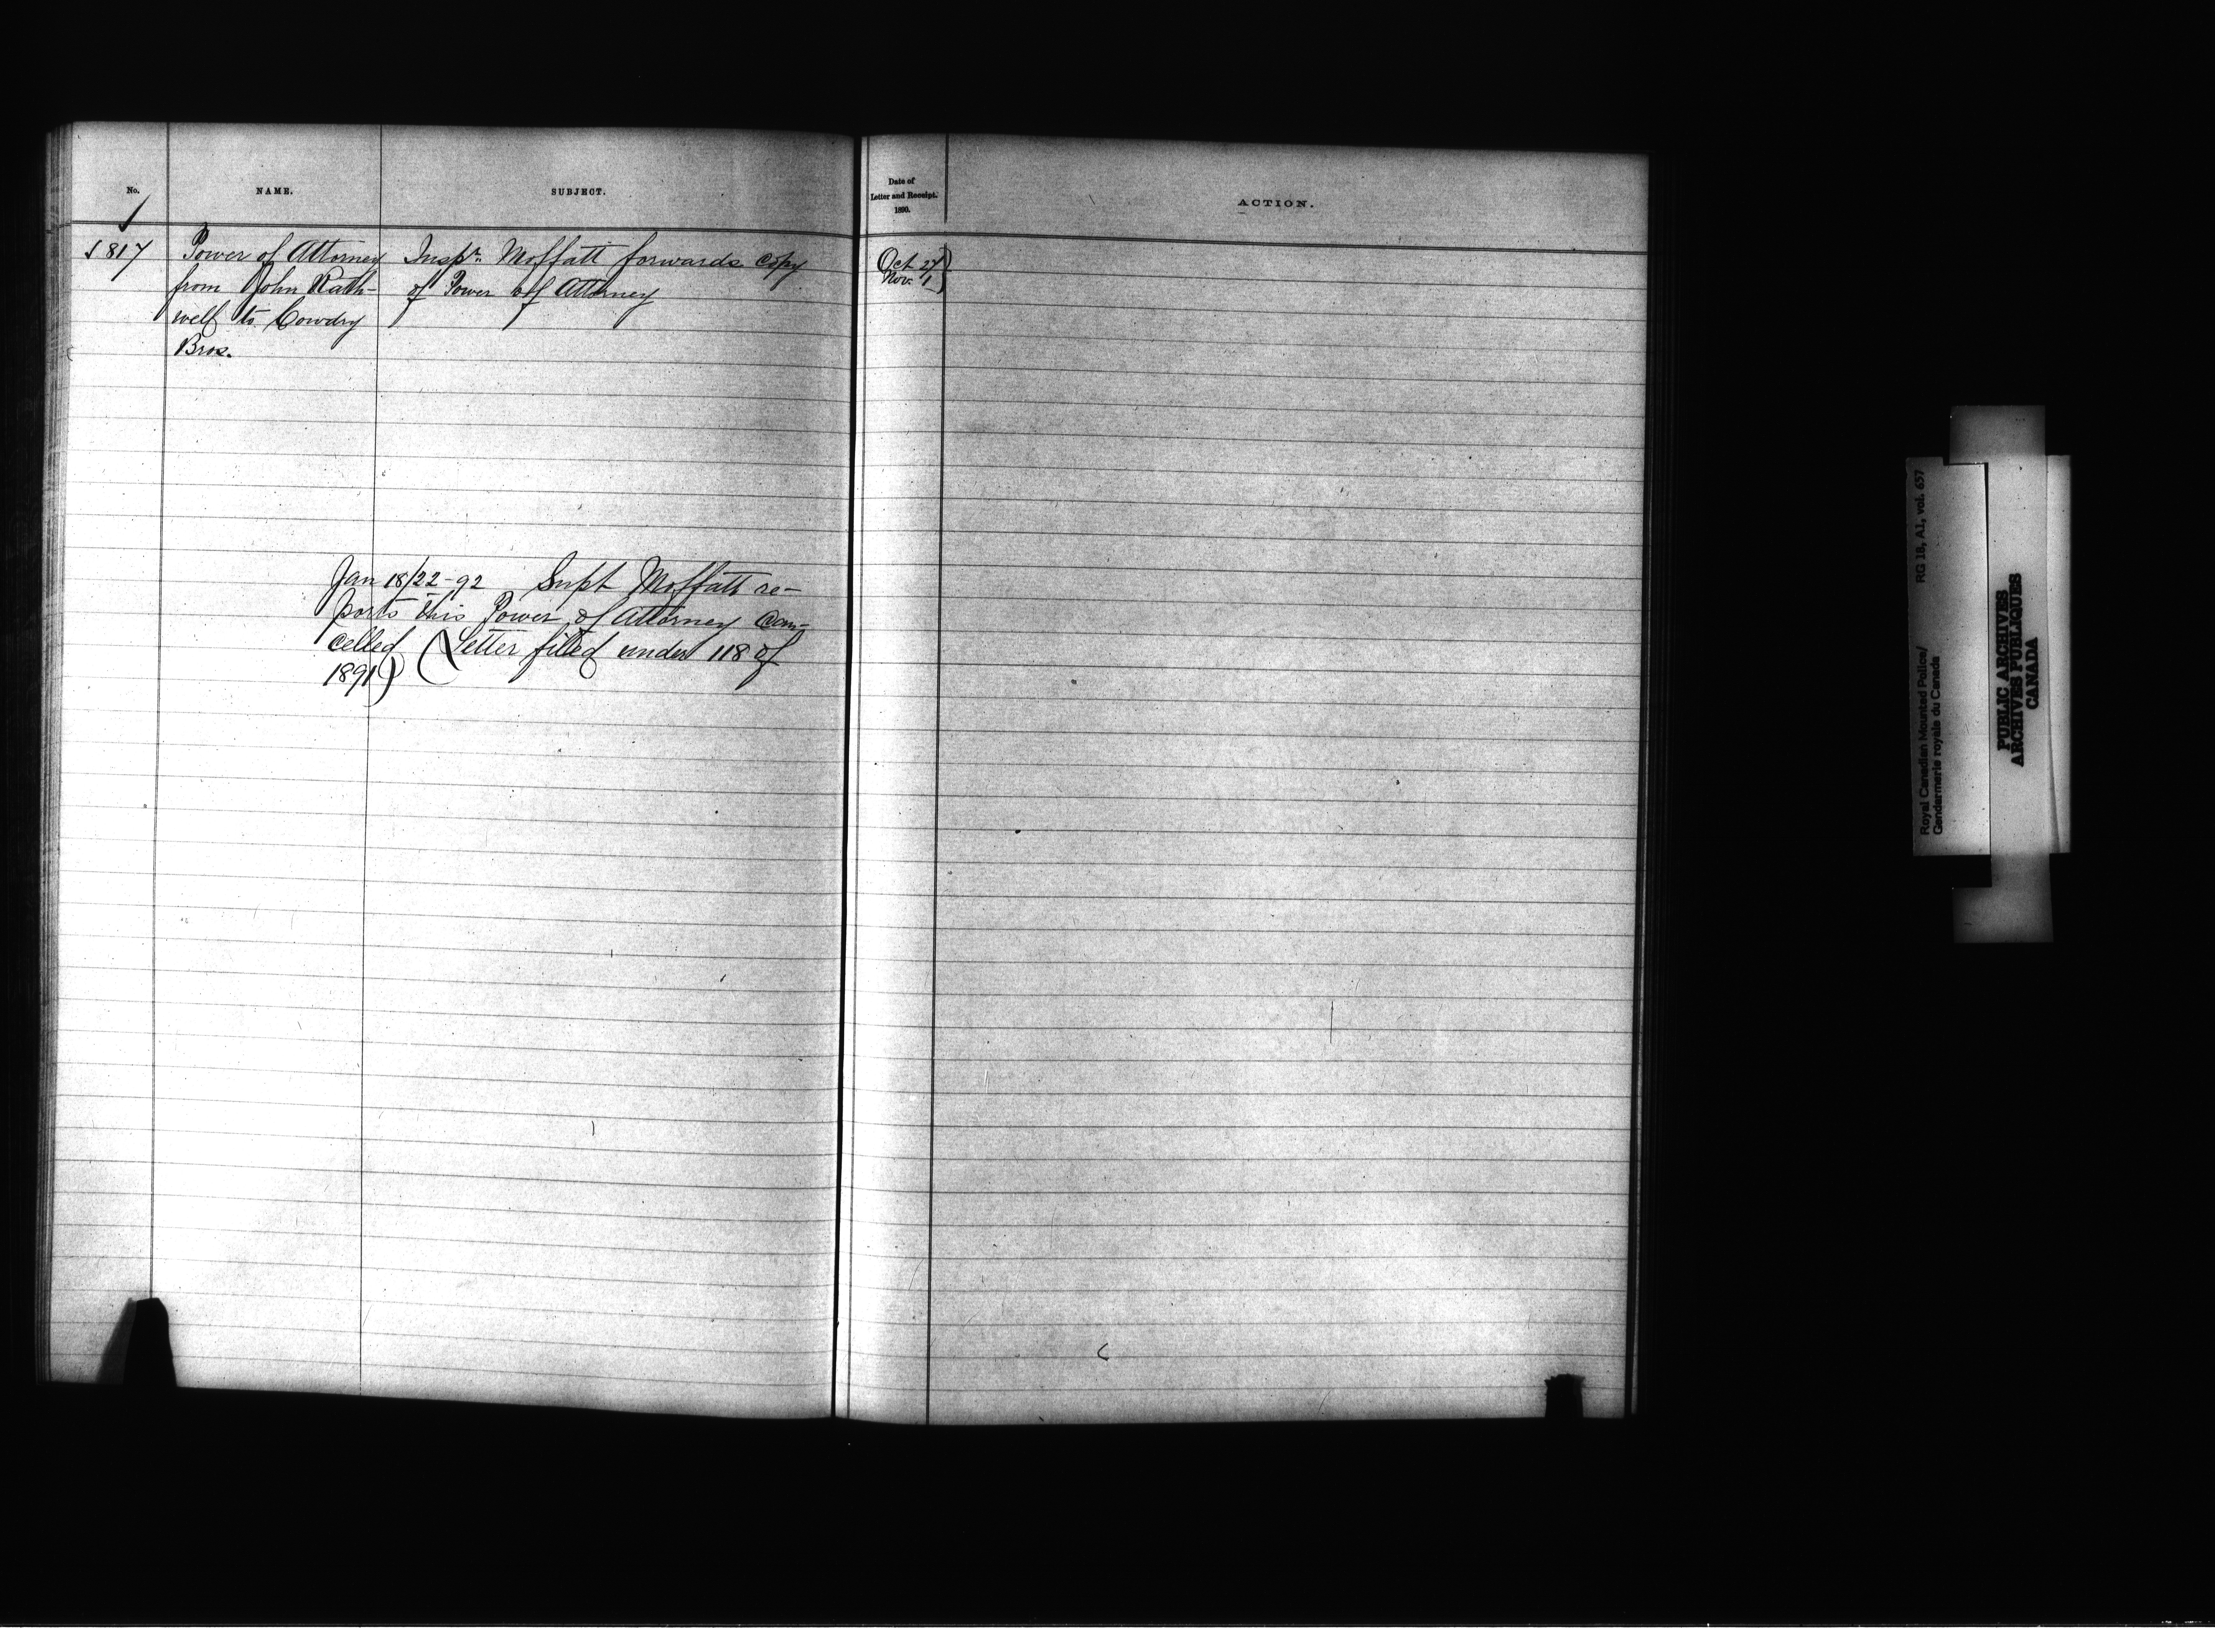 No.
NAME.
SUBJECT.
Date of
Letter and Receipt.
1890.
ACTION.
1817
Power of Attorney
from John Rath-
well to Cowdry
Bros.
Inspr. Moffatt forwards copy
of Power of Attorney
Oct 27
Nov. 1
Jan 18/22-92 Supt Moffatt re-
ports this Power of Attorney can-
celled (Letter filed under 118 of
1891)
Royal Canadian Mounted Police/
Gendarmerie royale du Canada
RG 18, A1, vol. 657
PUBLIC ARCHIVES
ARCHIVES PUBLIQUES
CANADA